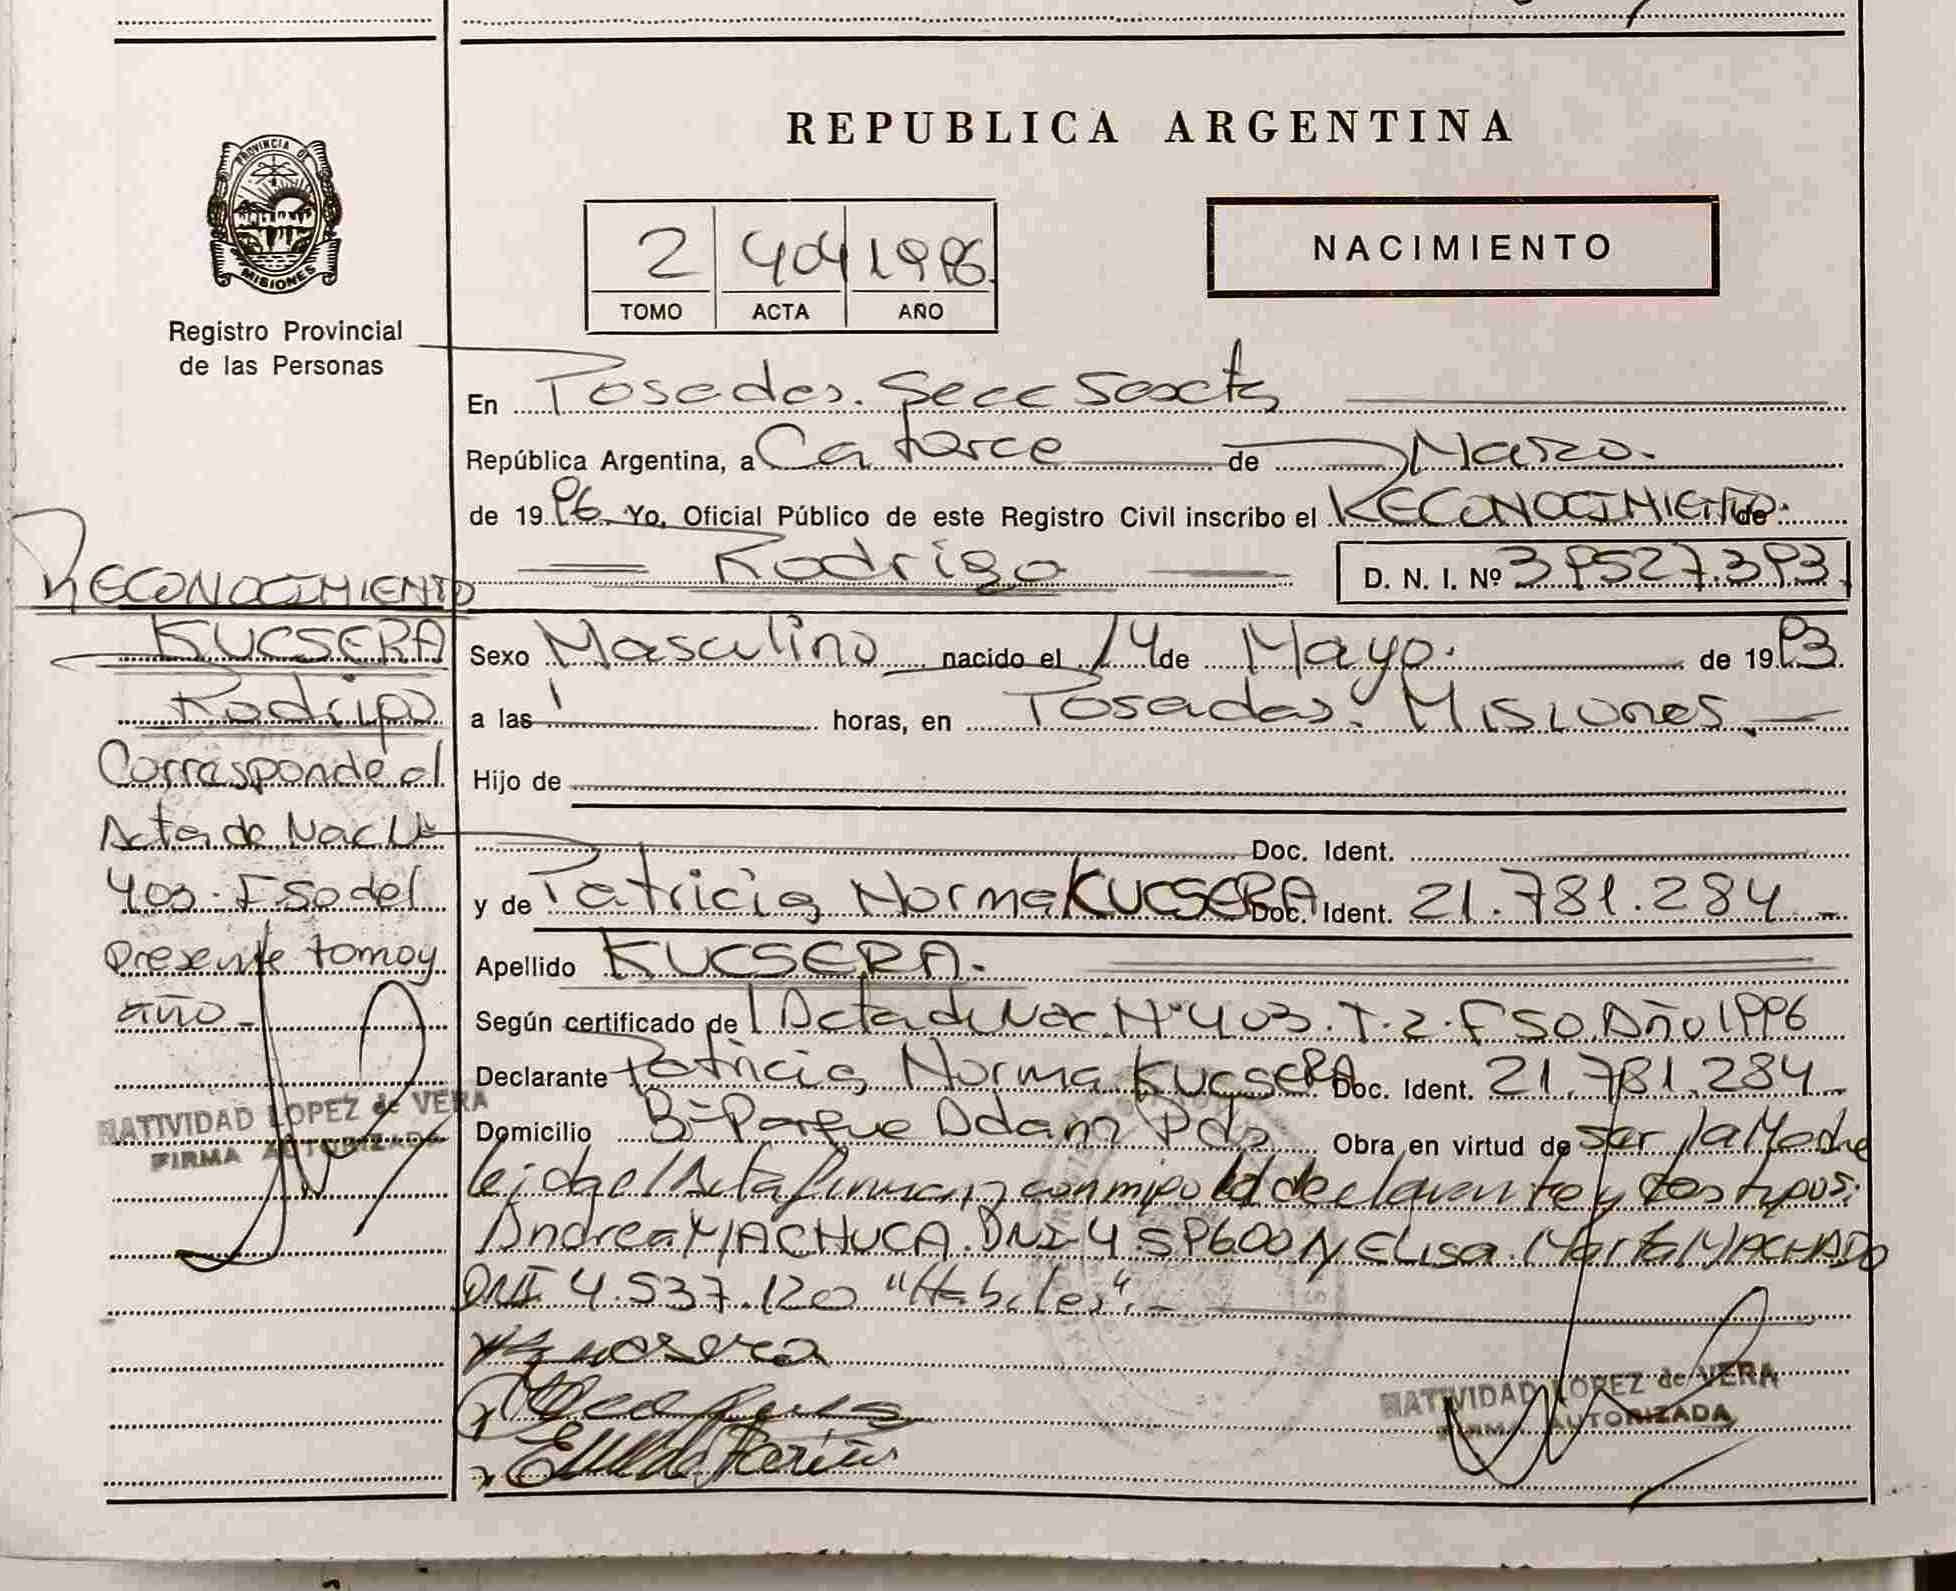 PROVINCIA DE
MISIONES
Registro Provincial
de las Personas
REPUBLICA ARGENTINA
2 404 1996.
TOMO ACTA AÑO
NACIMIENTO
En Posadas. Secc Sexta
República Argentina, a Catorce de Marzo.
de 1996 Yo, Oficial Público de este Registro Civil inscribo el RECONOCIMIENTO. de
Rodrigo D. N. I. Nº 39527.393.
Sexo Masculino nacido el 14 de Mayo. de 1993.
a las horas, en Posadas. Misiones
Hijo de
Doc. Ident.
y de Patricia Norma KUCSERA Doc. Ident. 21.781.284
Apellido KUCSERA.
Según certificado de l Acta de Nac. Nº 403. T. 2. F 50. Año 1996
Declarante Patricia Norma KUCSERA Doc. Ident. 21.781.284
Domicilio Bº Parque Adam Pdas Obra en virtud de ser la Madre
leida el Acta firman conmigo la declarante y testigos:
Andrea MACHUCA. DNI 4.59600 y Elisa. Marta MACHADO
DNI 4.537.120 "Habiles".
NATIVIDAD LOPEZ de VERA
FIRMA AUTORIZADA
RECONOCIMIENTO
KUCSERA
Rodrigo
Corresponde al
Acta de Nac Nº
403. F 50 del
presente tomo y
año
NATIVIDAD LOPEZ de VERA
FIRMA AUTORIZADA